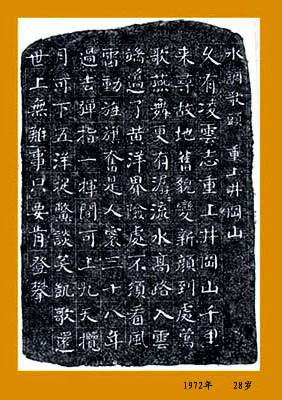 水調歌頭 重上井岡山
久有凌雲志重上井岡山千里
来尋故地舊貌變新顔到處鶯
歌燕舞更有潺流水高路入雲
端過了黄洋界險處不須看風
雷動旌旗奮是人寰三十八年
過去彈指一揮間可上九天攬
月可下五洋捉鱉談笑凱歌還
世上無難事只要肯登攀
1972年 28岁